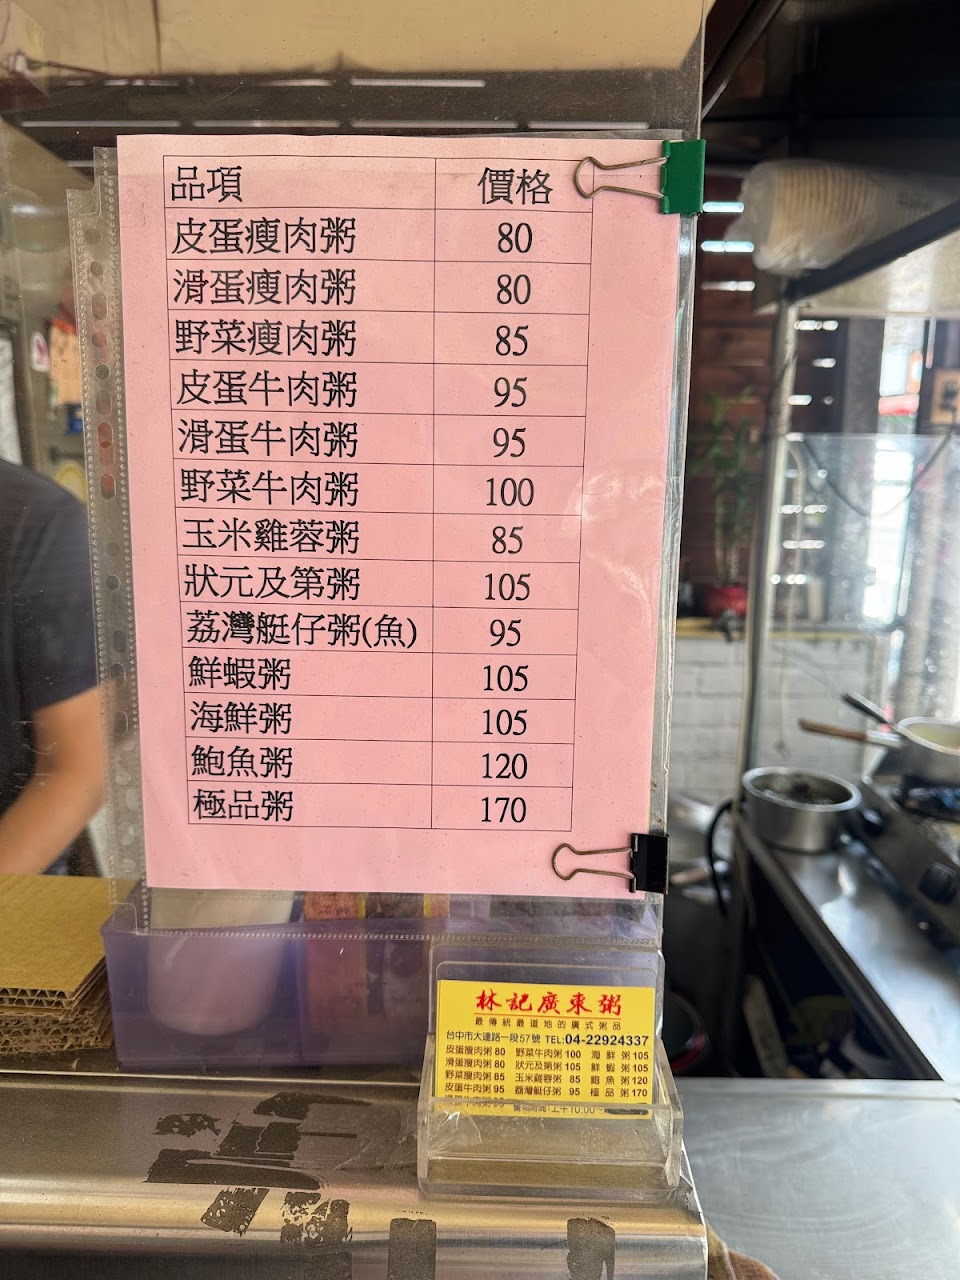 品項 價格
皮蛋瘦肉粥 80
滑蛋瘦肉粥 80
野菜瘦肉粥 85
皮蛋牛肉粥 95
滑蛋牛肉粥 95
野菜牛肉粥 100
玉米雞蓉粥 85
狀元及第粥 105
荔灣艇仔粥(魚) 95
鮮蝦粥 105
海鮮粥 105
鮑魚粥 120
極品粥 170
林記廣東粥
最傳統最道地的廣式粥品
台中市大連路一段57號 TEL:04-22924337
皮蛋瘦肉粥 80 野菜牛肉粥 100 海鮮粥 105
滑蛋瘦肉粥 80 狀元及第粥 105 鮮蝦粥 105
野菜瘦肉粥 85 玉米雞蓉粥 85 鮑魚粥 120
皮蛋牛肉粥 95 荔灣艇仔粥 95 極品粥 170
滑蛋牛肉粥 95 營業時間:上午10:00